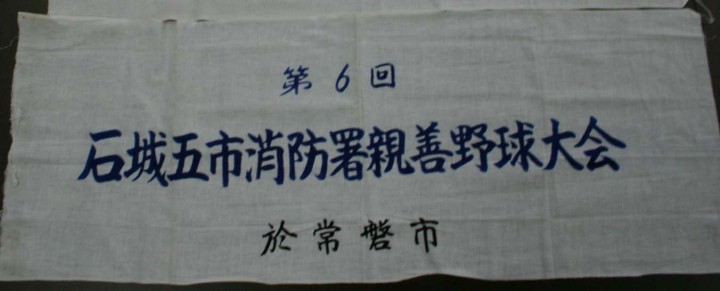 第6回
石城五市消防署親善野球大会
於常磐市